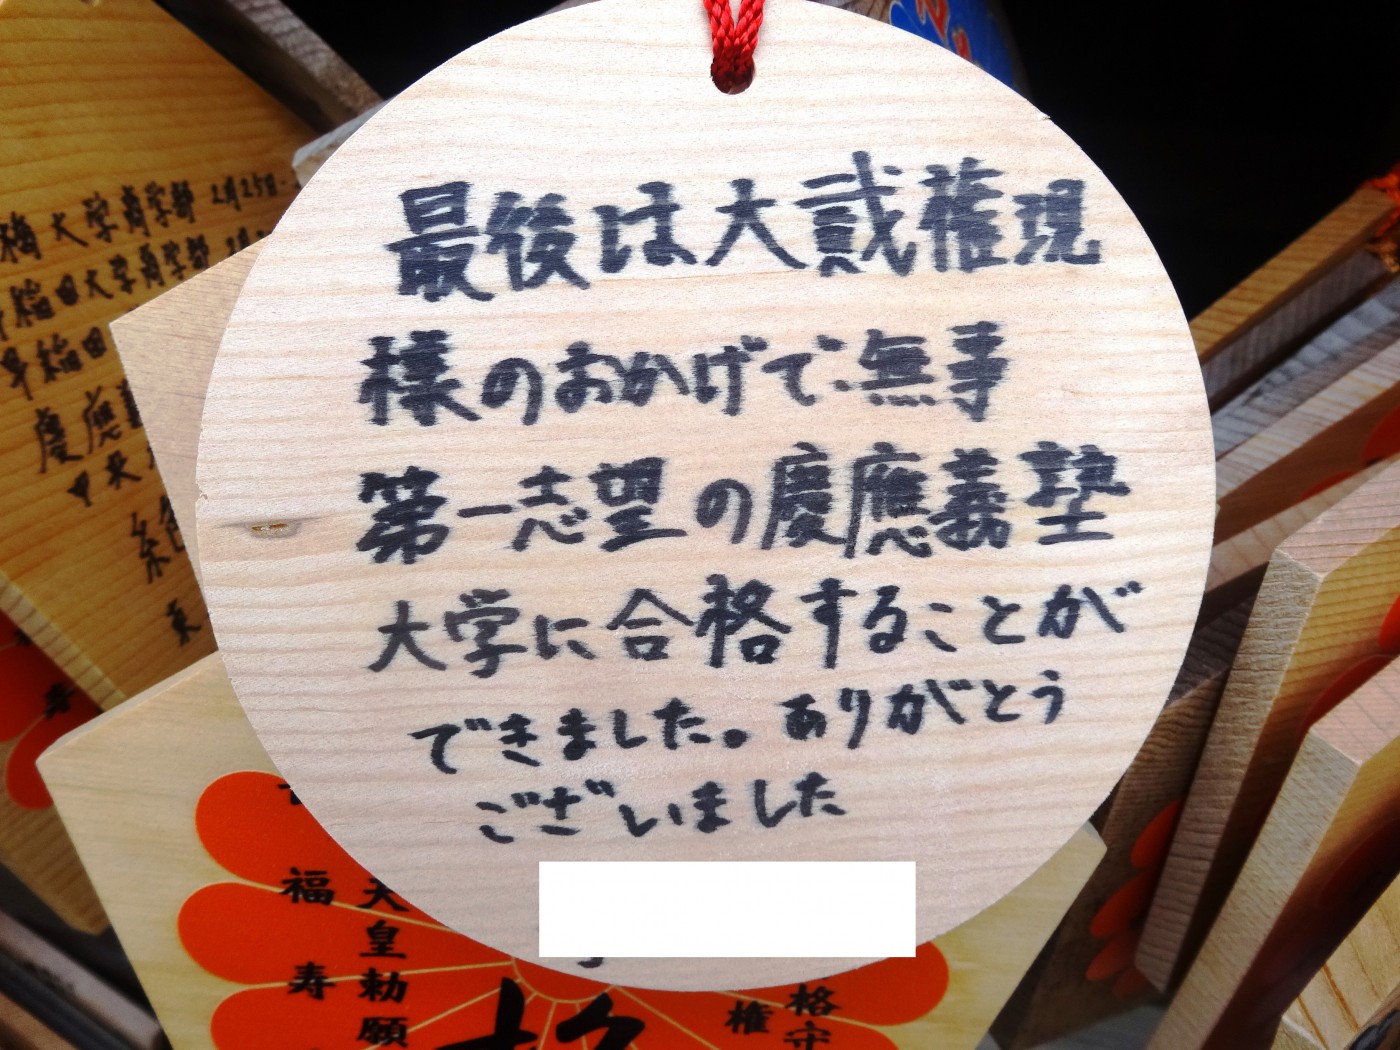 最後は大貮権現
様のおかげで無事
第一志望の慶應義塾
大学に合格することが
できました。ありがとう
ございました
大学商学部 2月25日
稲田大学商学部
早稲田
慶應義
福寿
天皇勅願
格守
権